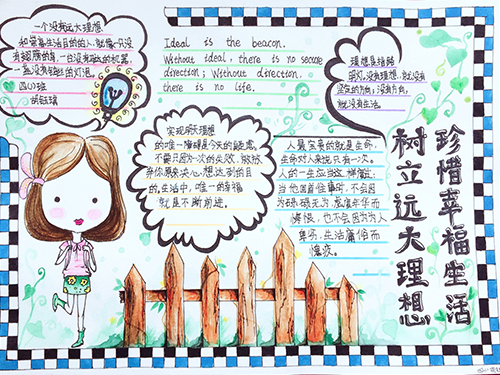 一个没有远大理想
和崇高生活目的的人,就像一只没
有翅膀的鸟,一台没有
一盏没有钨丝的灯泡。
Ideal is the beacon.
Without ideal, there is no secure
direction; Without direction,
there is no life.
理想是指路
明灯,没有理想,就没有
坚定的方向;没有方向,
就没有生活。
实现明天理想
的唯一障碍是今天的疑虑。
不要只因为一次的失败,就放
弃你原来决心想达到的目
的。生活中,唯一的幸福
就是不断前进。
人最宝贵的就是生命,
生命对人来说只有一次。
人的一生应当这样度过:
当他回首往事时,不会因
为碌碌无为,虚度年华而
悔恨,也不会因为为人
卑劣,生活庸俗而
愧疚。
珍惜幸福生活
树立远大理想